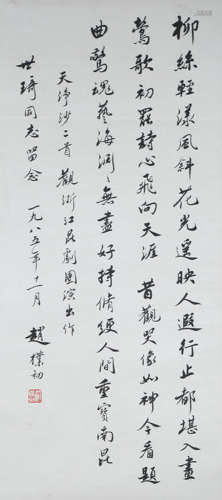 柳絲輕漾風斜花光遙映人遐行止都堪入畫
鶯歌初罷詩心飛向天涯 昔觀哭像如神今看題
曲驚魂藝海無盡好持脩綆人間重寶南崑
天淨沙二首 觀浙江崑劇團演出作
世琦同志留念 一九八五年十一月 趙樸初